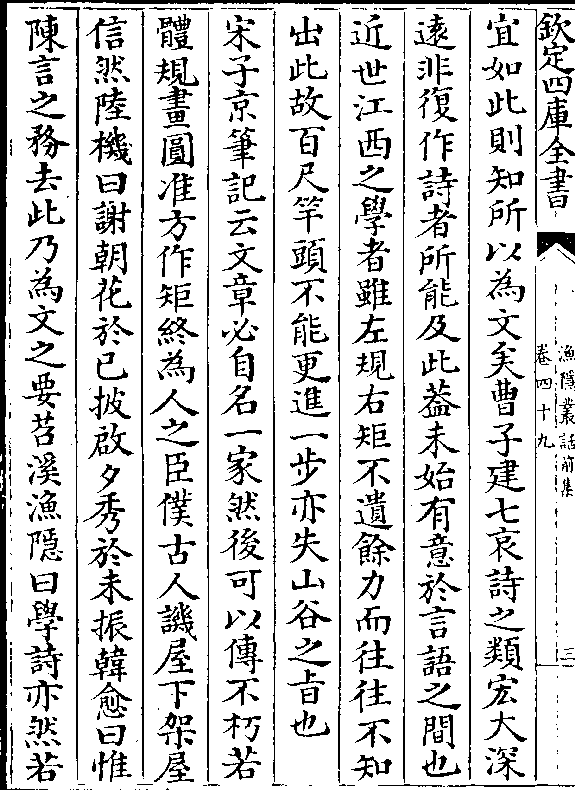 欽定四庫全書
漁隱叢話前集
卷四十九
三
宜如此則知所以為文矣曹子建七哀詩之類宏大深
逺非復作詩者所能及此葢未始有意於言語之間也
近世江西之學者雖左規右矩不遺餘力而往往不知
出此故百尺竿頭不能更進一步亦失山谷之㫖也
宋子京筆記云文章必自名一家然後可以傳不朽若
體規畫圓准方作矩終為人之臣僕古人譏屋下架屋
信然陸機曰謝朝花於已披啟夕秀於未振韓愈曰惟
陳言之務去此乃為文之要苕溪漁隱曰學詩亦然若